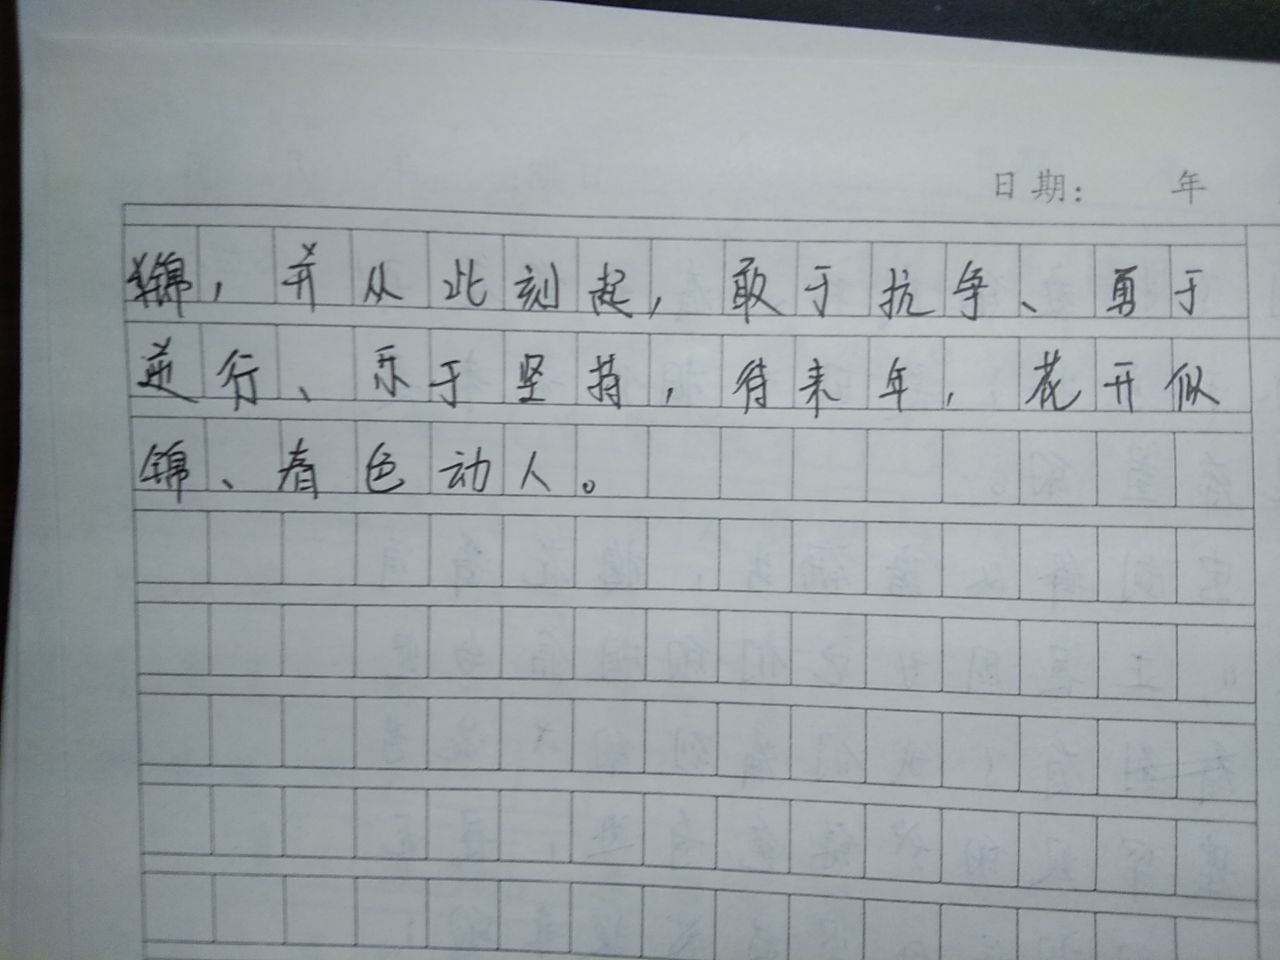 日期: 年
锦，并从此刻起，敢于抗争、勇于
逆行、乐于坚持，待来年，花开似
锦、春色动人。